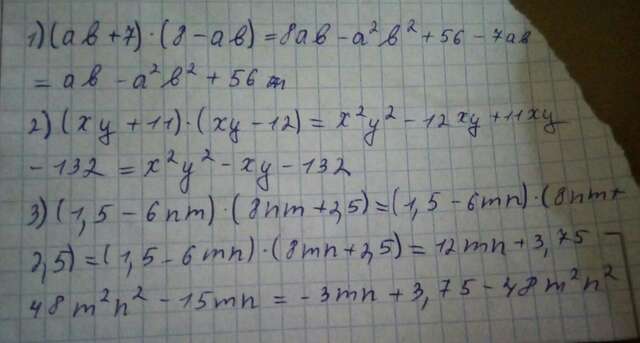 1) (ab+7)·(8-ab)=8ab-a²b²+56-7ab
=ab-a²b²+56
2) (xy+11)·(xy-12)=x²y²-12xy+11xy
-132=x²y²-xy-132
3) (1,5-6nm)·(8nm+2,5)=(1,5-6mn)·(8nm+
2,5)=(1,5-6mn)·(8mn+2,5)=12mn+3,75-
48m²n²-15mn=-3mn+3,75-48m²n²